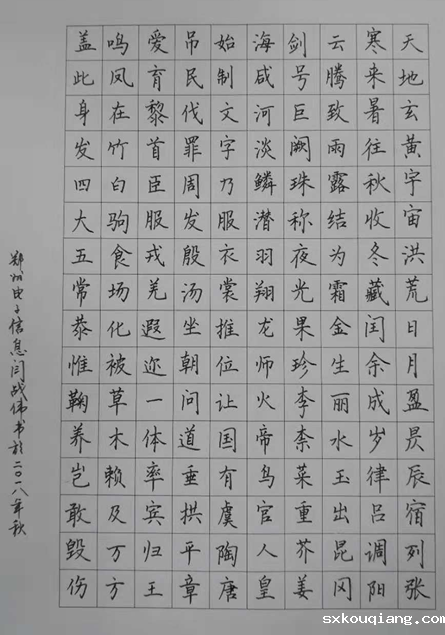 天地玄黄宇宙洪荒日月盈昃辰宿列张
寒来暑往秋收冬藏闰余成岁律吕调阳
云腾致雨露结为霜金生丽水玉出昆冈
剑号巨阙珠称夜光果珍李柰菜重芥姜
海咸河淡鳞潜羽翔龙师火帝鸟官人皇
始制文字乃服衣裳推位让国有虞陶唐
吊民伐罪周发殷汤坐朝问道垂拱平章
爱育黎首臣服戎羌遐迩一体率宾归王
鸣凤在竹白驹食场化被草木赖及万方
盖此身发四大五常恭惟鞠养岂敢毁伤
郑州电子信息闫战伟书於二〇一八年秋
sxkouqiang.com